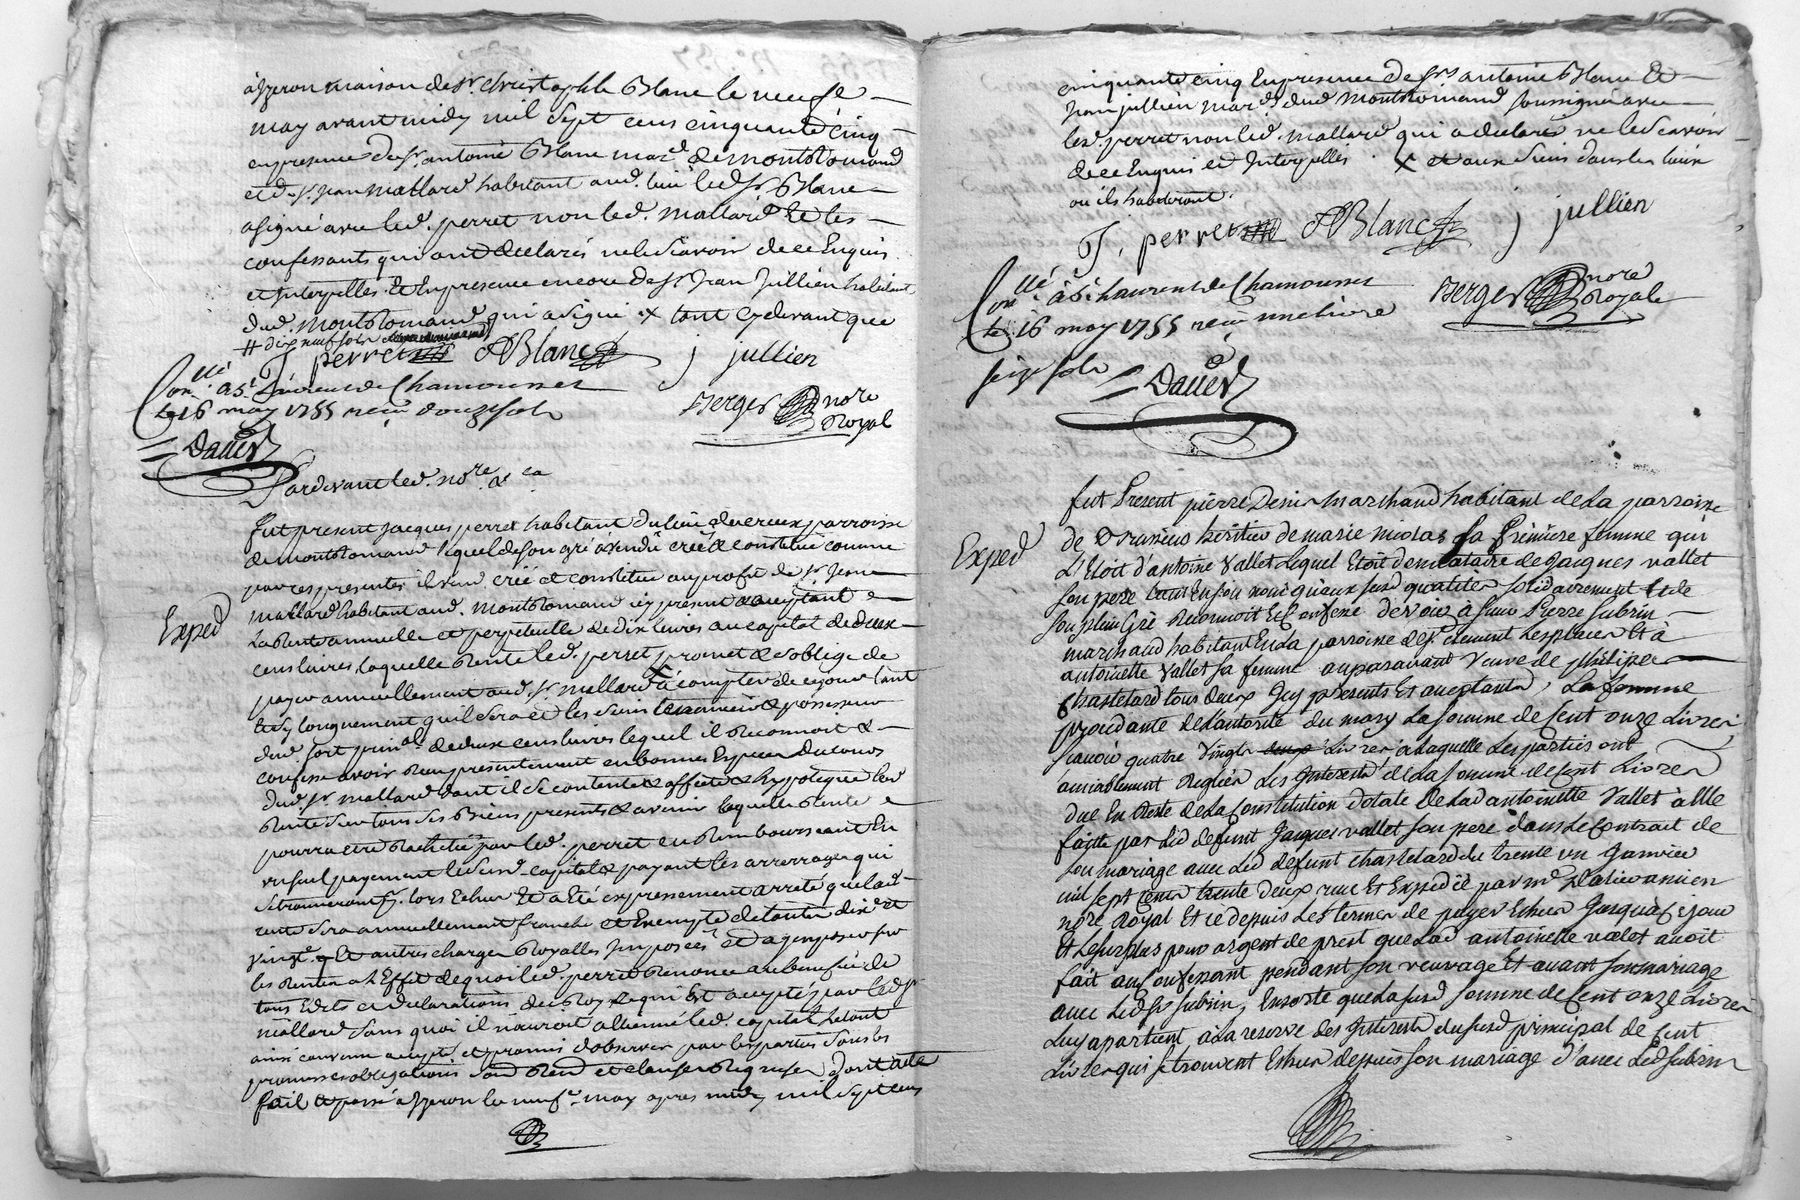 maison de Sr. Christophle Blanc le neufe
may avant midy mil sept cens cinquante cinq
en presence de Sr. antoine Blanc mar.d de montromand
et de Sr. Jean mallard habitant aud. lieu led. Sr. Blanc
a signé avec led. perret non led. mallard Et les
confessants qui ont declarés ne le scavoir de ce Enquis
et Interpellés Et En presence encore de Sr. Jean Jullien habitant
dud. montromand qui a signé x tant cy devant que
# dix neuf sols
J, perret ABlanc j jullien
Con.llé a St. Laurent de Chamousset
le 16 may 1755 reçu douze sols
Berger nore Royal
Daüer
Pardevant led. no.re &.ca
Exped
fut present jacques perret habitant du lieu de parroisse
de montromand lequel de son gré a vendu créé & constitué comme
par ces presentes il vend créé et constitue au profit de Sr. Jean
mallard habitant aud. montromand icy present & acceptant
La Rente annuelle et perpetuelle de dix livres au capital de deux
cens livres, laquelle Rente led. perret promet & s'oblige de
payer annuellement aud. Sr. mallard à compter de ce jour tant
Et sy longuement qu'il sera et les siens possesseur
dud. sort prin.al de deux cens livres lequel il Reconnoit &
confesse avoir presentement en bonnes Especes du cours
dud. Sr. mallard dont il se contente & affecte & hypoteque lad.
Rente sur tous ses Biens presents & avenir laquelle Rente
pourra etre Rachetée par led. perret en Remboursant En
un seul payement led. susd. capital & payant les arrerages qui
se trouveront lors Echus Et a Eté expressement arreté que lad.
rente sera annuellement franche et Exempte de toutes dix.e et
vingt.e Et autres charges Royalles Imposées et a Imposer sur
les Rentes a l'Effet de quoi led. perret Renonce au benefice de
tous Edits et declarations du Roy ce qui Est accepté par led. Sr.
mallard sans quoi il n'auroit alliené led. capital
ainsi convenu accepté et promis d'observer par les parties sous les
promesses obligations et clauses Requises dont acte
fait & passé a le neuf.e may apres midy mil sept cens
cinquante cinq En presence de Srs. antoine Blanc Et
Jean jullien mar.ds dud. montromand soussignés avec
led. perret non led. mallard qui a declaré ne le scavoir
de ce Enquis et Interpellés. x et aux siens dans les lieux
ou ils habiteront.
J, perret ABlanc j jullien
Con.llé a St. Laurent de Chamousset
le 16 may 1755 reçu
seize sols
Berger nore Royale
Daüer
Exped
fut Present pierre Denis marchand habitant de La parroisse
de heritier de marie nicolas sa Premiere femme qui
L'Etoit d'antoine Vallet Lequel Etoit de jacques vallet
son pere tant En son nom qu'aux susd. qualités solidairement Et de
son plein Gré Reconnoit Et Confesse devoir à Pierre Subrin
marchand habitant En La parroisse de St. clement Les places Et à
antoinette Vallet sa femme auparavant veuve de philipe
Chastelard tous deux Icy presents Et acceptants, La femme
procedante de L'autorité du mary La somme de Cent onze Livres,
scavoir quatre vingts Livres à Laquelle Les parties ont
amiablement Reglées Les Interests de La somme de Cent Livres
due En Reste de La Constitution dotale de Lad. antoinette Vallet à Elle
faitte par Led. defunt Jacques vallet son pere dans Le Contrat de
son mariage avec Led. defunt chastelard du trente un Janvier
mil sept cents trente deux receu Et Expedié par m.e
nore Royal Et ce depuis Les termes de payes Echus Jusqu'à ce jour
Et Le surplus pour argent de prest que Lad. antoinette vallet avoit
fait au Confessant pendant son veuvage Et avant son mariage
avec Led. Sr. Subrin, En sorte que La susd. somme de Cent onze Livres
Luy apartient à La reserve des Interests du susd. principal de Cent
Livres qui se trouvent Echus depuis son mariage d'avec Led. Subrin